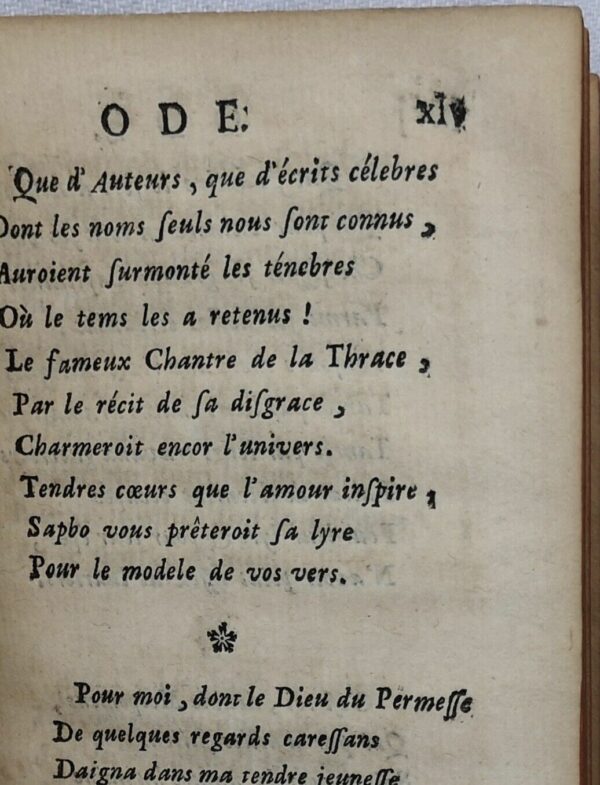 ODE. xlv
Que d'Auteurs, que d'écrits célebres
Dont les noms ſeuls nous ſont connus,
Auroient ſurmonté les ténebres
Où le tems les a retenus !
Le fameux Chantre de la Thrace,
Par le récit de ſa diſgrace,
Charmeroit encor l'univers.
Tendres cœurs que l'amour inſpire,
Sapho vous prêteroit ſa lyre
Pour le modele de vos vers.
Pour moi, dont le Dieu du Permeſſe
De quelques regards careſſans
Daigna dans ma tendre jeuneſſe